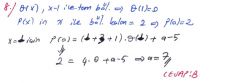 8-) Q(x), x-1 ile tam böl. ⇒ Q(1)=0
P(x) in x ile böl. kalan = 2 ⇒ P(0)=2
x= için P(0) = ( + 3 + 1). Q( ) + a-5
2 = 4.0 + a-5 ⇒ a=7
CEVAP: B